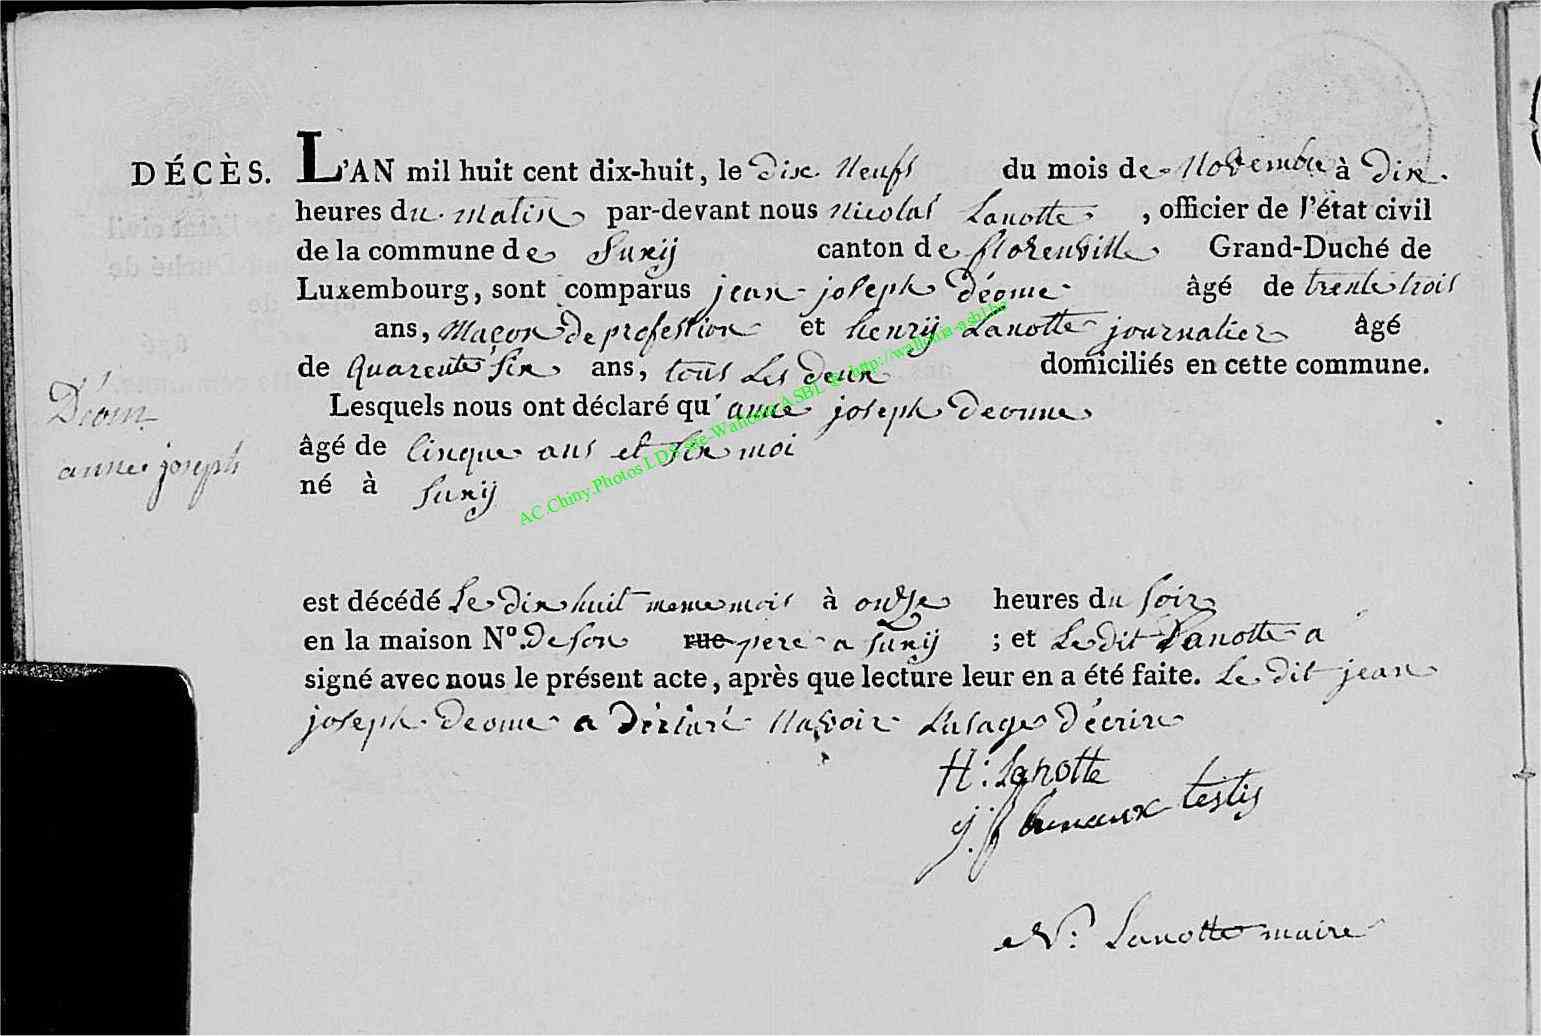 DÉCÈS. L'AN mil huit cent dix-huit, le dix Neufs du mois de Novembre à Dix
heures du matin par-devant nous Nicolas Lanotte, officier de l'état civil
de la commune de Suxij canton de florenville Grand-Duché de
Luxembourg, sont comparus jean joseph déome âgé de trente trois
ans, Maçon De profession et henrij Lanotte journalier âgé
de Quarente Six ans, tous Les deux domiciliés en cette commune.
Lesquels nous ont déclaré qu'anne joseph Deome
âgé de Cinque ans et Six moi
né à Suxij
Déom
anne joseph
est décédé Le Dix huit meme mois à onze heures du Soir
en la maison N° De son rue pere a Suxij ; et Le dit Lanotte a
signé avec nous le présent acte, après que lecture leur en a été faite. Le dit jean
joseph Deome a Déclaré Navoir Lusage Décrire
H: Lanotte
testis
N: Lanotte maire
AC.Chiny.Photos LDS